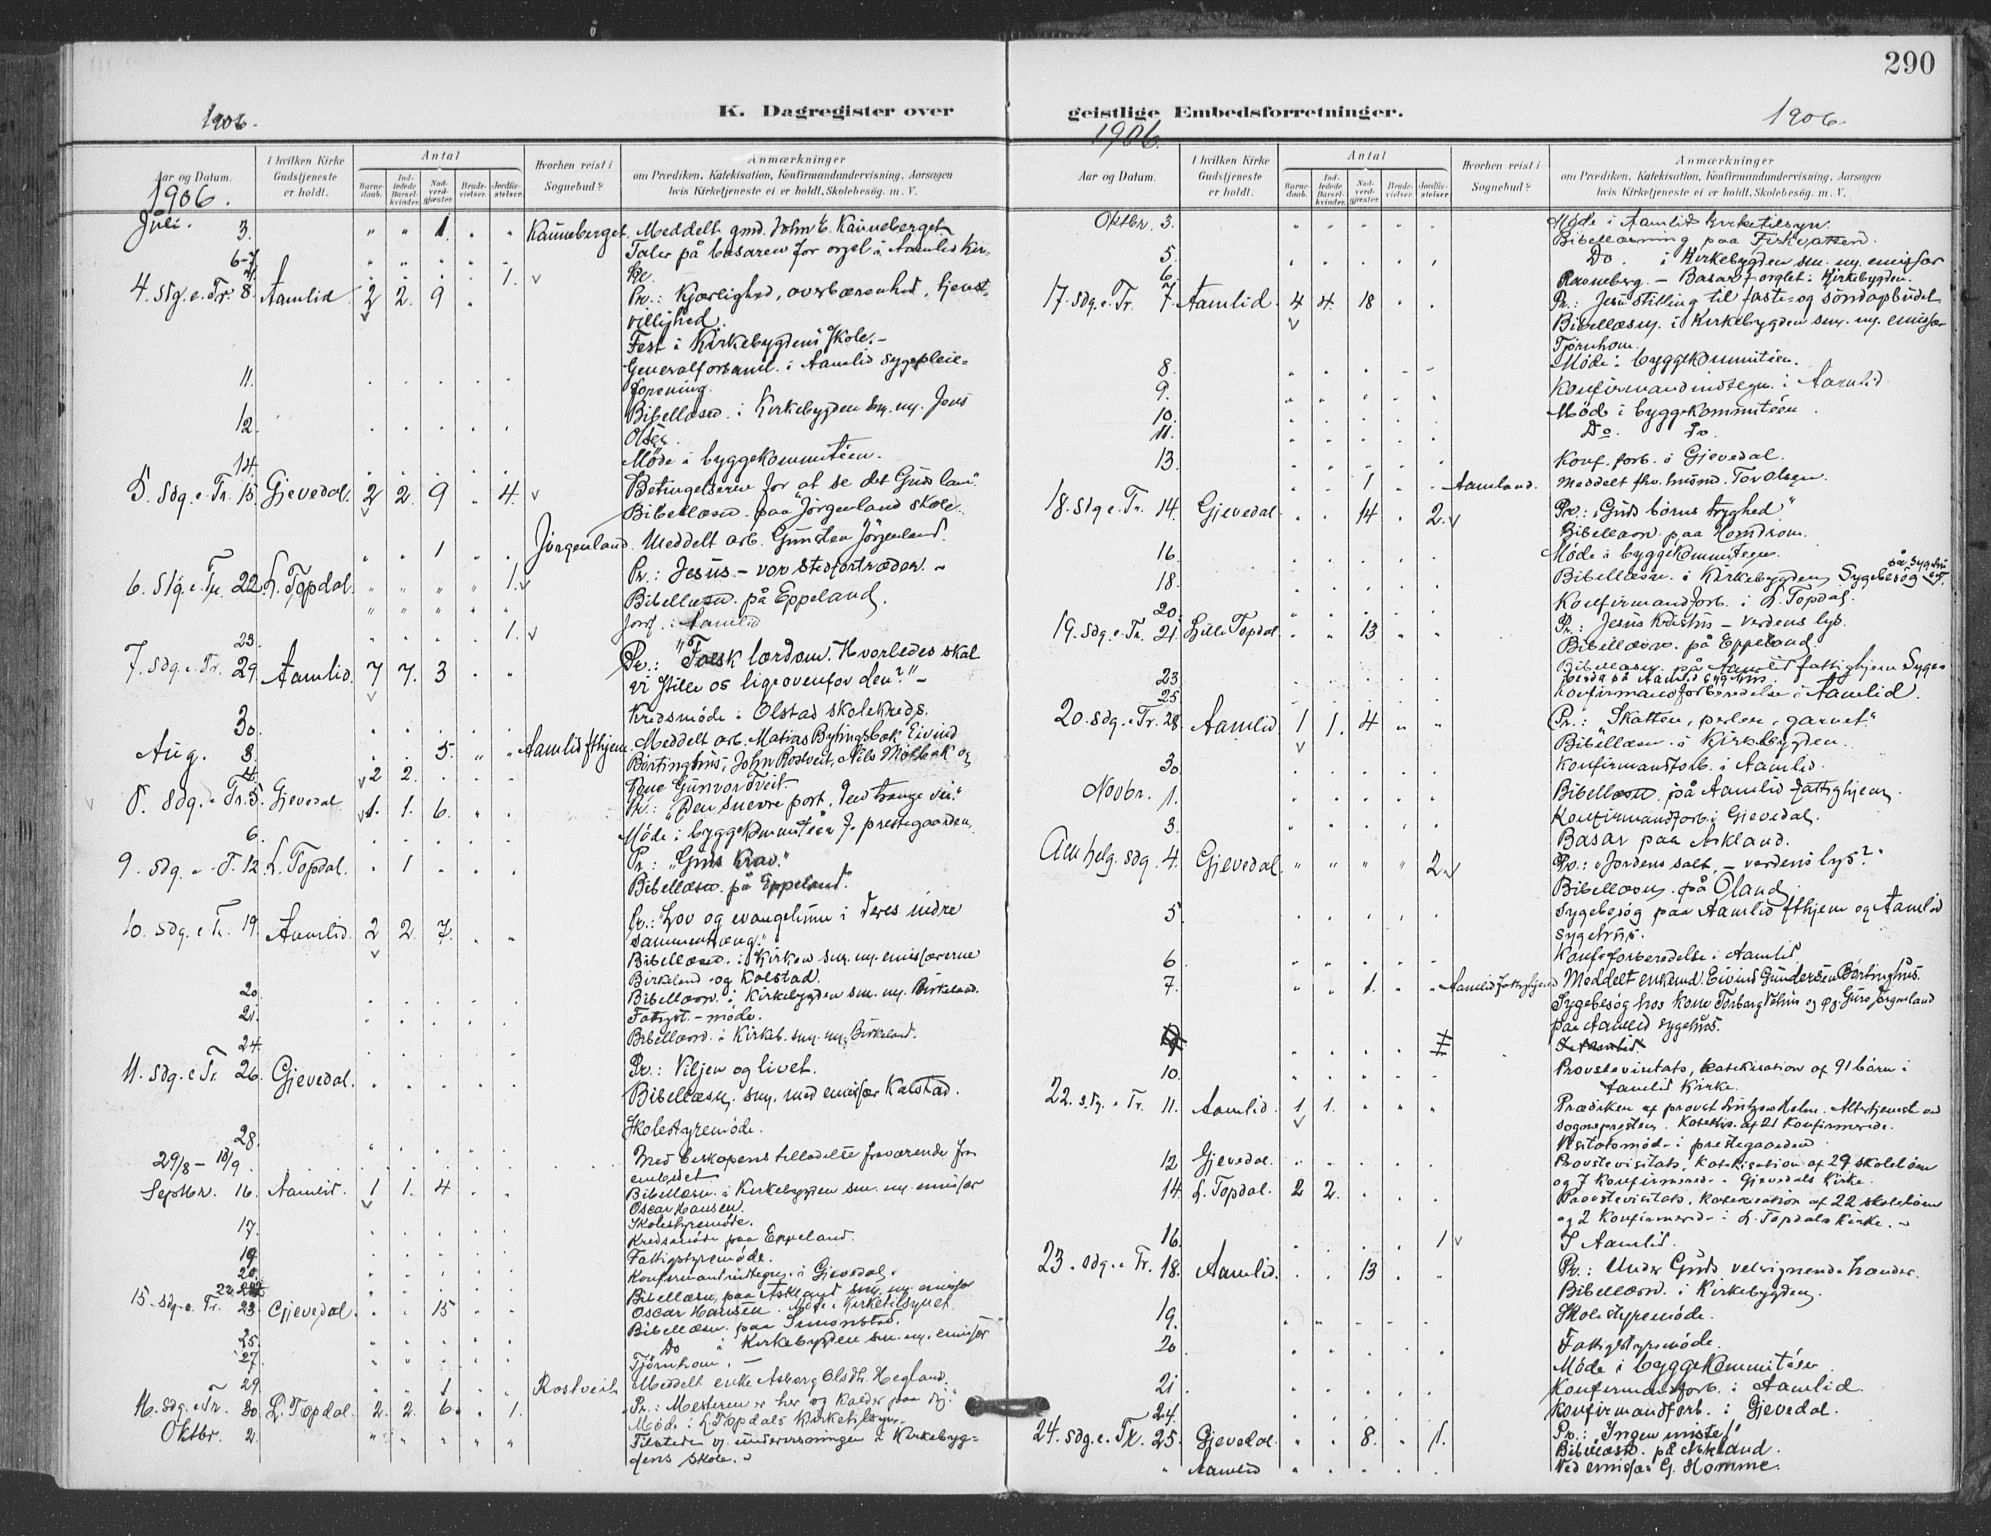 290
1906.
K. Dagregister over
Aar og Datum.
I hvilken Kirke Gudstjeneste er holdt.
Antal
Barnedaab.
Indledede Barselkvinder.
Nadverdgjæster.
Brudevielser.
Jordfæstelser.
Hvorhen reist i Sognebud?
Anmærkninger
om Prædiken, Katekisation, Konfirmandundervisning, Aarsagen
hvis Kirketjeneste ei er holdt, Skolebesøg, m. V.
1906.
Juli. 3. " " 1. " " Kauneberget. Meddelt gmd. John E. Kauneberget.
6-7 Taler på basaren for orgel i Aamlid Kirke.
7. 1. v
4. Sdg. e. Tr. 8. Aamlid 2 2. 9 Pr.: Kjærlighed, overbærenhed, tjenst-
villighed.
Fest i Kirkebygdens skole. -
11. Generalforsaml. i Aamlid sygepleie-
forening.
12. Bibellæsn. i Kirkebygden sm. m. Jens
Olsen.
14. Møde i byggekommitéen.
5. Sdg. e. Tr. 15. Gjevedal. 2 2. 9 " 4. v Betingelserne for at se det Guds lam.
Bibellæsn. paa Jørgenland skole.
1 Jørgenland. Meddelt arb. Gunsten Jörgenland.
6. Sdg. e. Tr. 22. L. Topdal. 1. v Pr.: Jesus - vor stedfortræder. -
Bibellæsn. på Eppeland.
23. 1. v Jordf. i Aamlid
7. Sdg. e. Tr. 29. Aamlid. 7 7. 3 Pr.: "Falsk lærdom. Hvorledes skal
vi stille os ligeovenfor den?" -
30. Kredsmøde i Olstad skolekreds.
Aug. 3. 5. Aamlid fthjem. Meddelt arb. Matias Bylingsbak, Eivind
Bortinghus, John Rostveit, Nils Motbak og
4. v 2 2. Kone Gunvor Tveit.
8. Sdg. e. Tr. 5. Gjevedal v 1. 1. 6. Pr.: "Den snevre port, den trange vei."
6. Møde i byggekommitéen f. prestegaarden.
9. Sdg. e. T. 12. L. Topdal. 1 Pr.: "Guds Krav."
Bibellæsn. på Eppeland.
10. Sdg. e. Tr. 19. Aamlid. 2 2. 7. Pr.: "Lov og evangelium i deres indre
sammenhæng."
Bibellæsn. i Kirken sm. m. emissærerne
Birkeland og Kalstad.
20. Bibellæsn. i Kirkebygden sm. m. Birkeland.
21. Fatigst.-møde.
24. Bibellæsn. i Kirkeb. sm. m. Birkeland.
11. Sdg. e. Tr. 26. Gjevedal. Pr.: Viljen og livet.
Bibellæsn. sm. med emissær Kalstad.
28. Skolestyremøde.
29/8 - 13/9. Med biskopens tilladelse fraværende fra
embedet
Septbr. 16. Aamlid. 1 1. 4 Bibellæsn. i Kirkebygden sm. m. emissær
Oscar Hansen.
17. Skolestyremøde.
Kredsmøde paa Eppeland.
19. Fattigstyremøde.
20. Konfirmandindtegn. i Gjevedal.
Bibellæsn. paa Askland sm. m. emissær
15. Sdg. e. Tr. 23. Gjevedal. 15 Oscar Hansen. Møde i Kirketilsynet.
25. Bibellæsn. paa Simonstad.
27. Do i Kirkebygden sm. m. emissær
Tjörnhom. -
29. 1 Rostveit Meddelt enke Asborg Olsdtr. Hegland.
16. Sdg. e. Tr. 30 L. Topdal. 2. 2. 6. 1. Pr.: "Mesteren er her og kalder paa dig."
Møde i L. Topdals Kirketilsyn.
Oktbr. 2. Tilstede v. undervisningen i Kirkebyg-
dens skole.
geistlige Embedsforretninger.
1906.
1906.
Aar og Datum.
I hvilken Kirke Gudstjeneste er holdt.
Antal
Barnedaab.
Indledede Barselkvinder.
Nadverdgjæster.
Brudevielser.
Jordfæstelser.
Hvorhen reist i Sognebud?
Anmærkninger
om Prædiken, Katekisation, Konfirmandundervisning, Aarsagen
hvis Kirketjeneste ei er holdt, Skolebesøg, m. V.
Oktbr. 3. Møde i Aamlid Kirketilsyn.
Bibellæsning paa Fiskvatten.
5. Do. i Kirkebygden sm. m. emissær
6. Raaneberg. - Basar f. orglet i Kirkebygden.
17. Sdg. e. Tr. 7. Aamlid. 4 4. 18 Pr.: Jesu stilling til faste- og söndagsbudet
Bibellæsn. i Kirkebygden sm. m. emissær
Tjørnhom.
8. Møde i byggekommitéen.
9. Konfirmandindtegn. i Aamlid
10. Møde i byggekommitéen.
11. Do. Do.
13. Konf. forb. i Gjevedal.
1 Aamland. Meddelt fhv. Tor Olsen.
18. Sdg. e. Tr. 14. Gjevedal. 14 2. v Pr.: "Guds børns tryghed"
Bibellæsn. paa Homdrom.
16. Møde i byggekommitéen.
18. Bibellæsn. i Kirkebygden. Sygebesøg på sygehuset.
20. Konfirmandforb. i L. Topdal.
19. Sdg. e. Tr. 21. Lille Topdal. 13 Pr.: Jesus Kristus - verdens lys.
Bibellæsn. på Eppeland.
23. Bibellæsn. på Aamlid fattighjem. Syge-
besøg på Aamlid sygehus.
25. Konfirmandforberedelse i Aamlid.
20. Sdg. e. Tr. 28. Aamlid 1 1. 4 Pr.: "Skatten, perlen, garnet."
Bibellæsn. i Kirkebygden.
30. Konfirmandforb. i Aamlid.
Novbr. 1. Bibellæsn. på Aamlid Fattighjem.
3. Konfirmandforb. i Gjevedal.
Basar paa Askland.
Allehelg. sdg. 4. Gjevedal. " " " " 2 v Pr.: "Jordens salt, - verdens lys?"
Bibellæsn. på Öland
5 Sygebesøg paa Aamlid fthjem og Aamlid
sygehus.
6 Konf. forberedelse i Aamlid.
7. 1. Aamlid fattighjem Meddelt enkemd. Eivind Gundersen Bortinghus.
Sygebesøg hos kone Torborg og pg. Guro Jørgenland
paa Aamlid sygehus.
I Aamlid.
10. Provstevisitats, katekisation af 91 børn i
Aamlid Kirke.
22. s. e. Tr. 11. Aamlid. 1 1. Prædiken af provst Lützow Holm. Altertjeneste ved
sognepresten. Katekis. af 21 konfirmerede.
Visitatsmøde i prestegaarden.
12 Gjevedal. Provstevisitats, katekisation af 29 skolebørn
og 7 konfirmerede i Gjevedals Kirke.
14. L. Topdal. 2 2. Provstevisitats, katekisation af 22 skolebørn
og 2 Konfirmerede i L. Topdals Kirke. -
16. 1 v I Aamlid.
23. Sdg. e. Tr. 18. Aamlid. 13 Pr.: Under Guds velsignende hænder.
Bibellæsn. i Kirkebygden.
19. Skolestyremøde.
20. Fattigstyremøde.
Møde i byggekommitéen
21. Konfirmandforb. i Aamlid.
24. Konfirmandforb. i Gjevedal.
24. Sdg. e. Tr. 25. Gjevedal. 8. 1. Pr.: "Ingen miste!"
Bibellæsn. på Askland.
" Aamlid Ved emissær G. Homme.